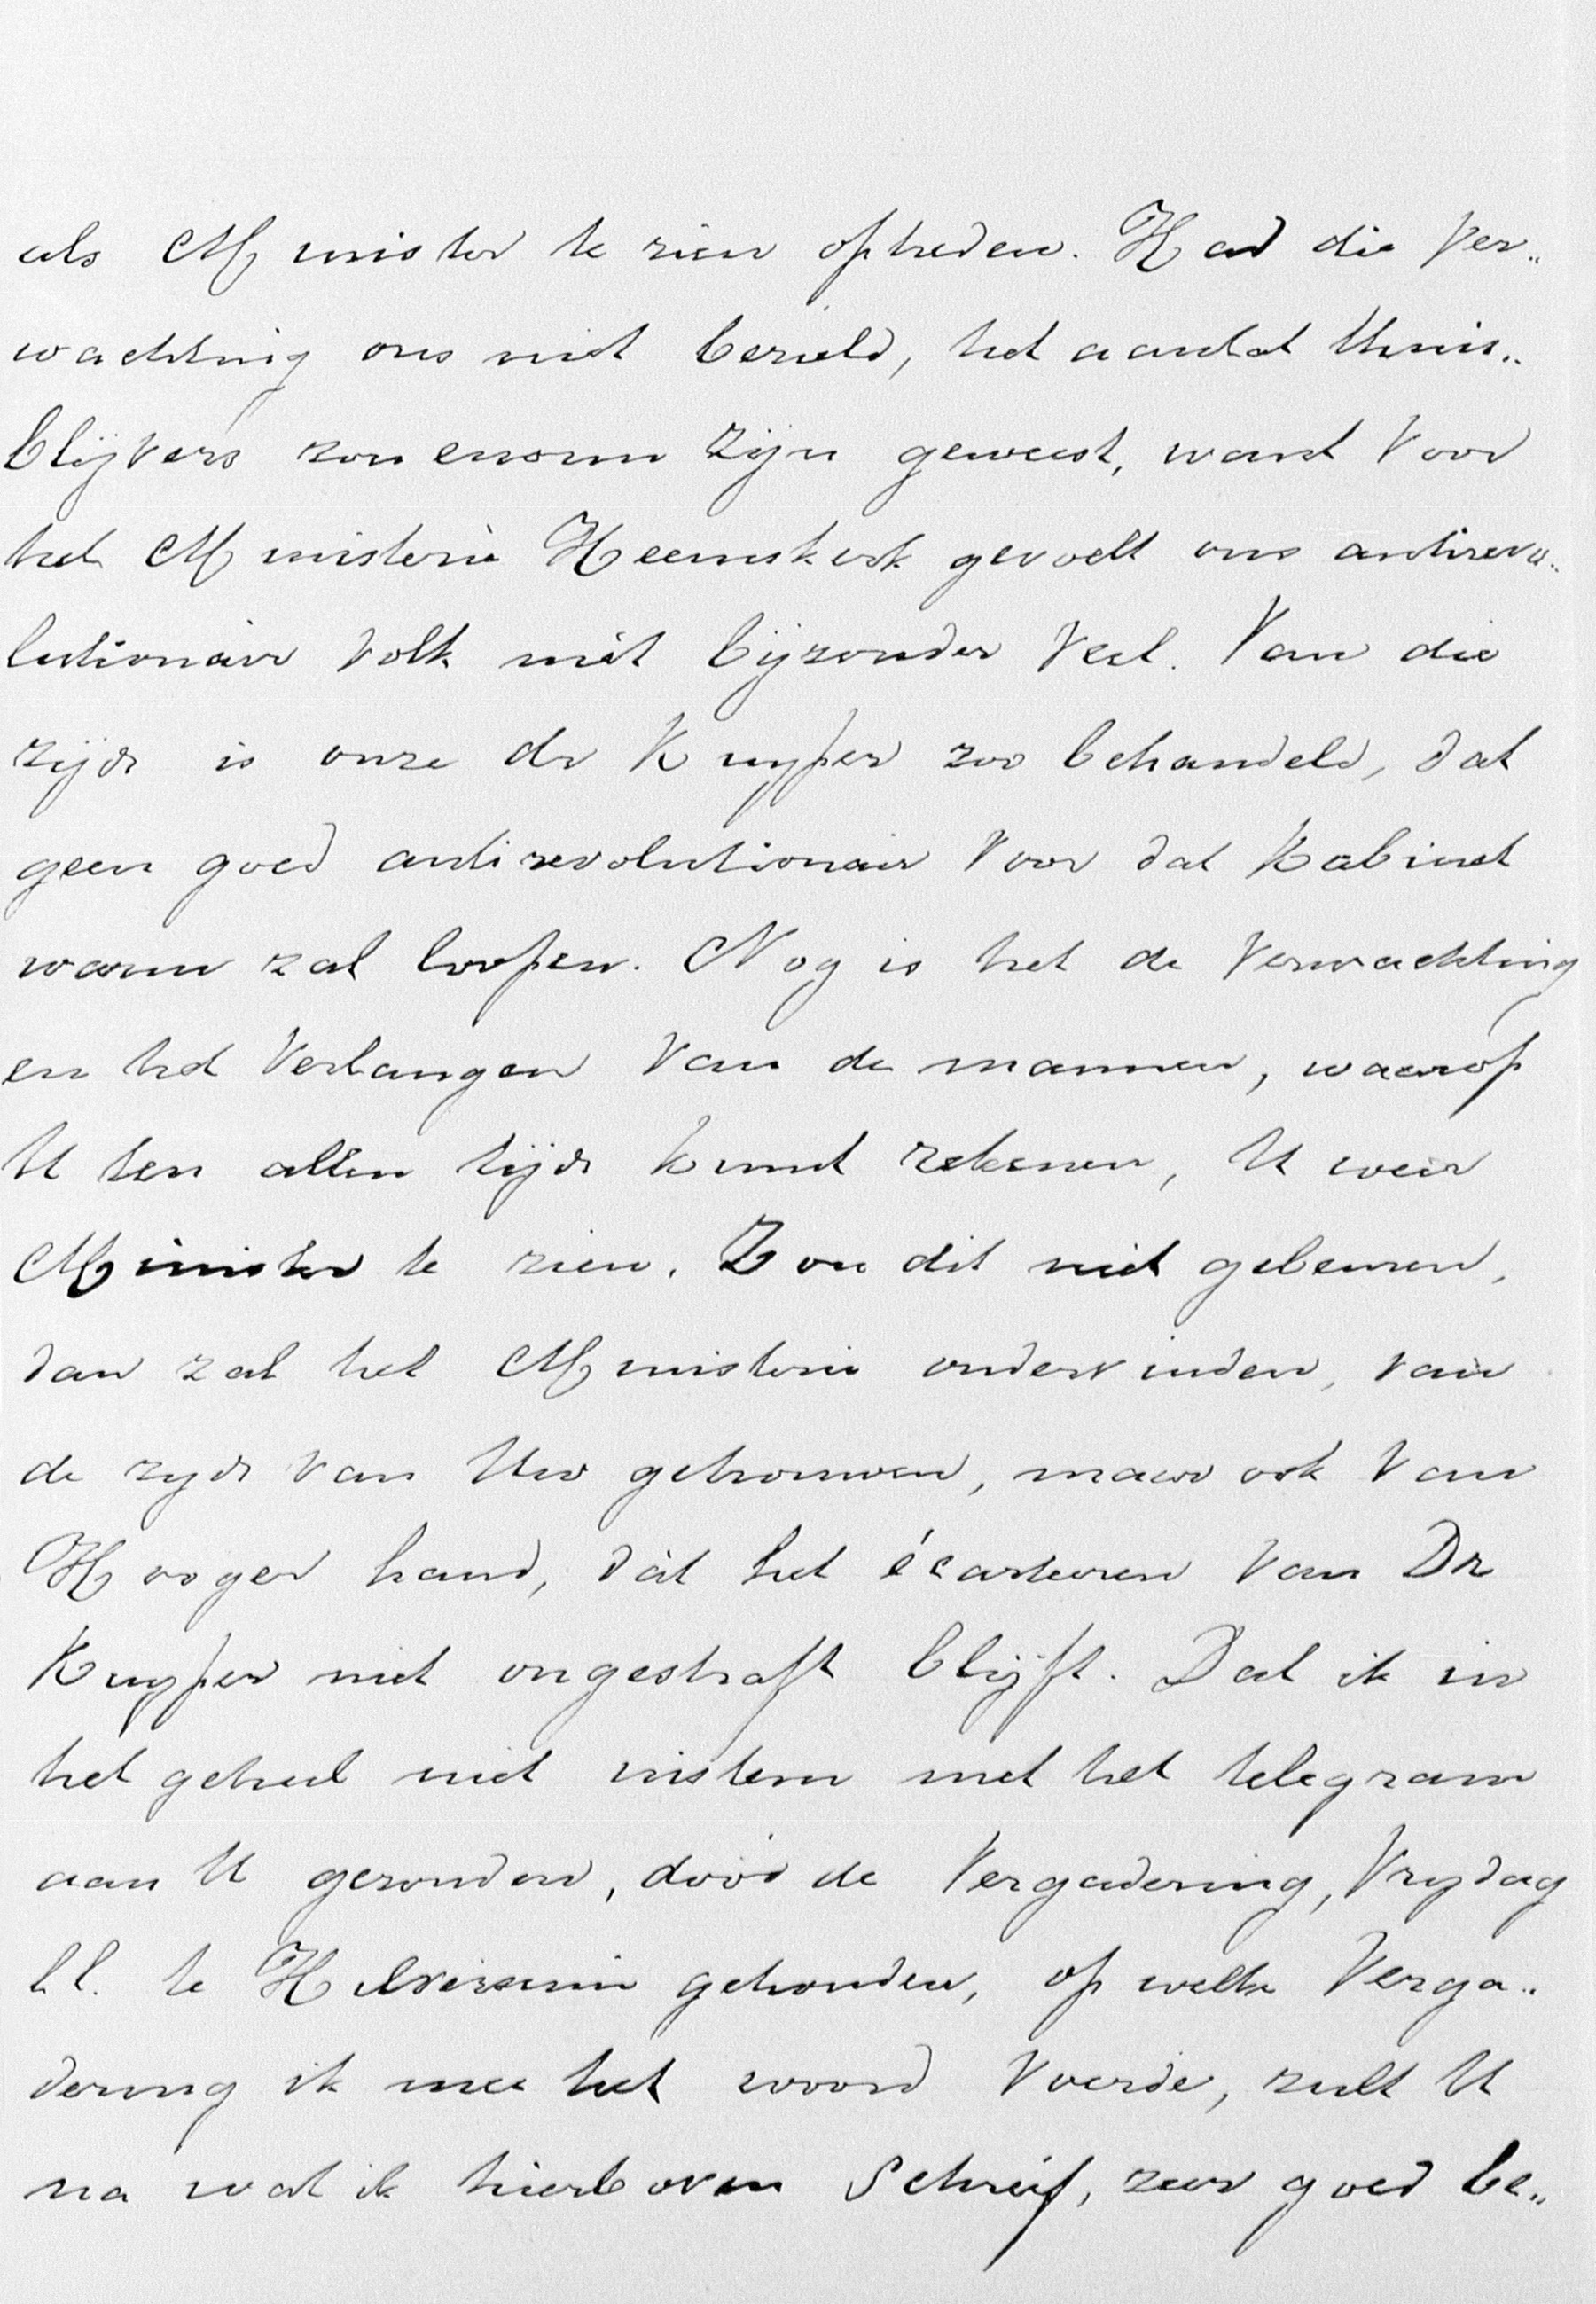 als Minister te zien optreden. Had die ver„
wachting ons niet bezield, het aantal thuis„
blijvers zou enorm zijn geweest, want voor
het Ministerie Heemskerk gevoelt ons antirevo„
lutionair volk niet bijzonder veel. Van die
zijde is onze dr Kuyper zoo behandeld, dat
geen goed antirevolutionair voor dat Kabinet
warm zal loopen. Nog is het de verwachting
en het verlangen van de mannen, waarop
U ten allen tijde kunt rekenen, U weer
Minister te zien. Zou dit niet gebeuren,
dan zal het Ministerie ondervinden, van
de zyde van Uw getrouwen, maar ook van
Hooger hand, dàt het écarteeren van Dr
Kuyper niet ongestraft blijft. Dat ik in
het geheel niet instem met het telegram
aan U gezonden, door de Vergadering, Vrydag
l.l. te Hilversum gehouden, op welke Verga„
dering ik mee het woord voerde, zult U
na wat ik hierboven schreef, zeer goed be„